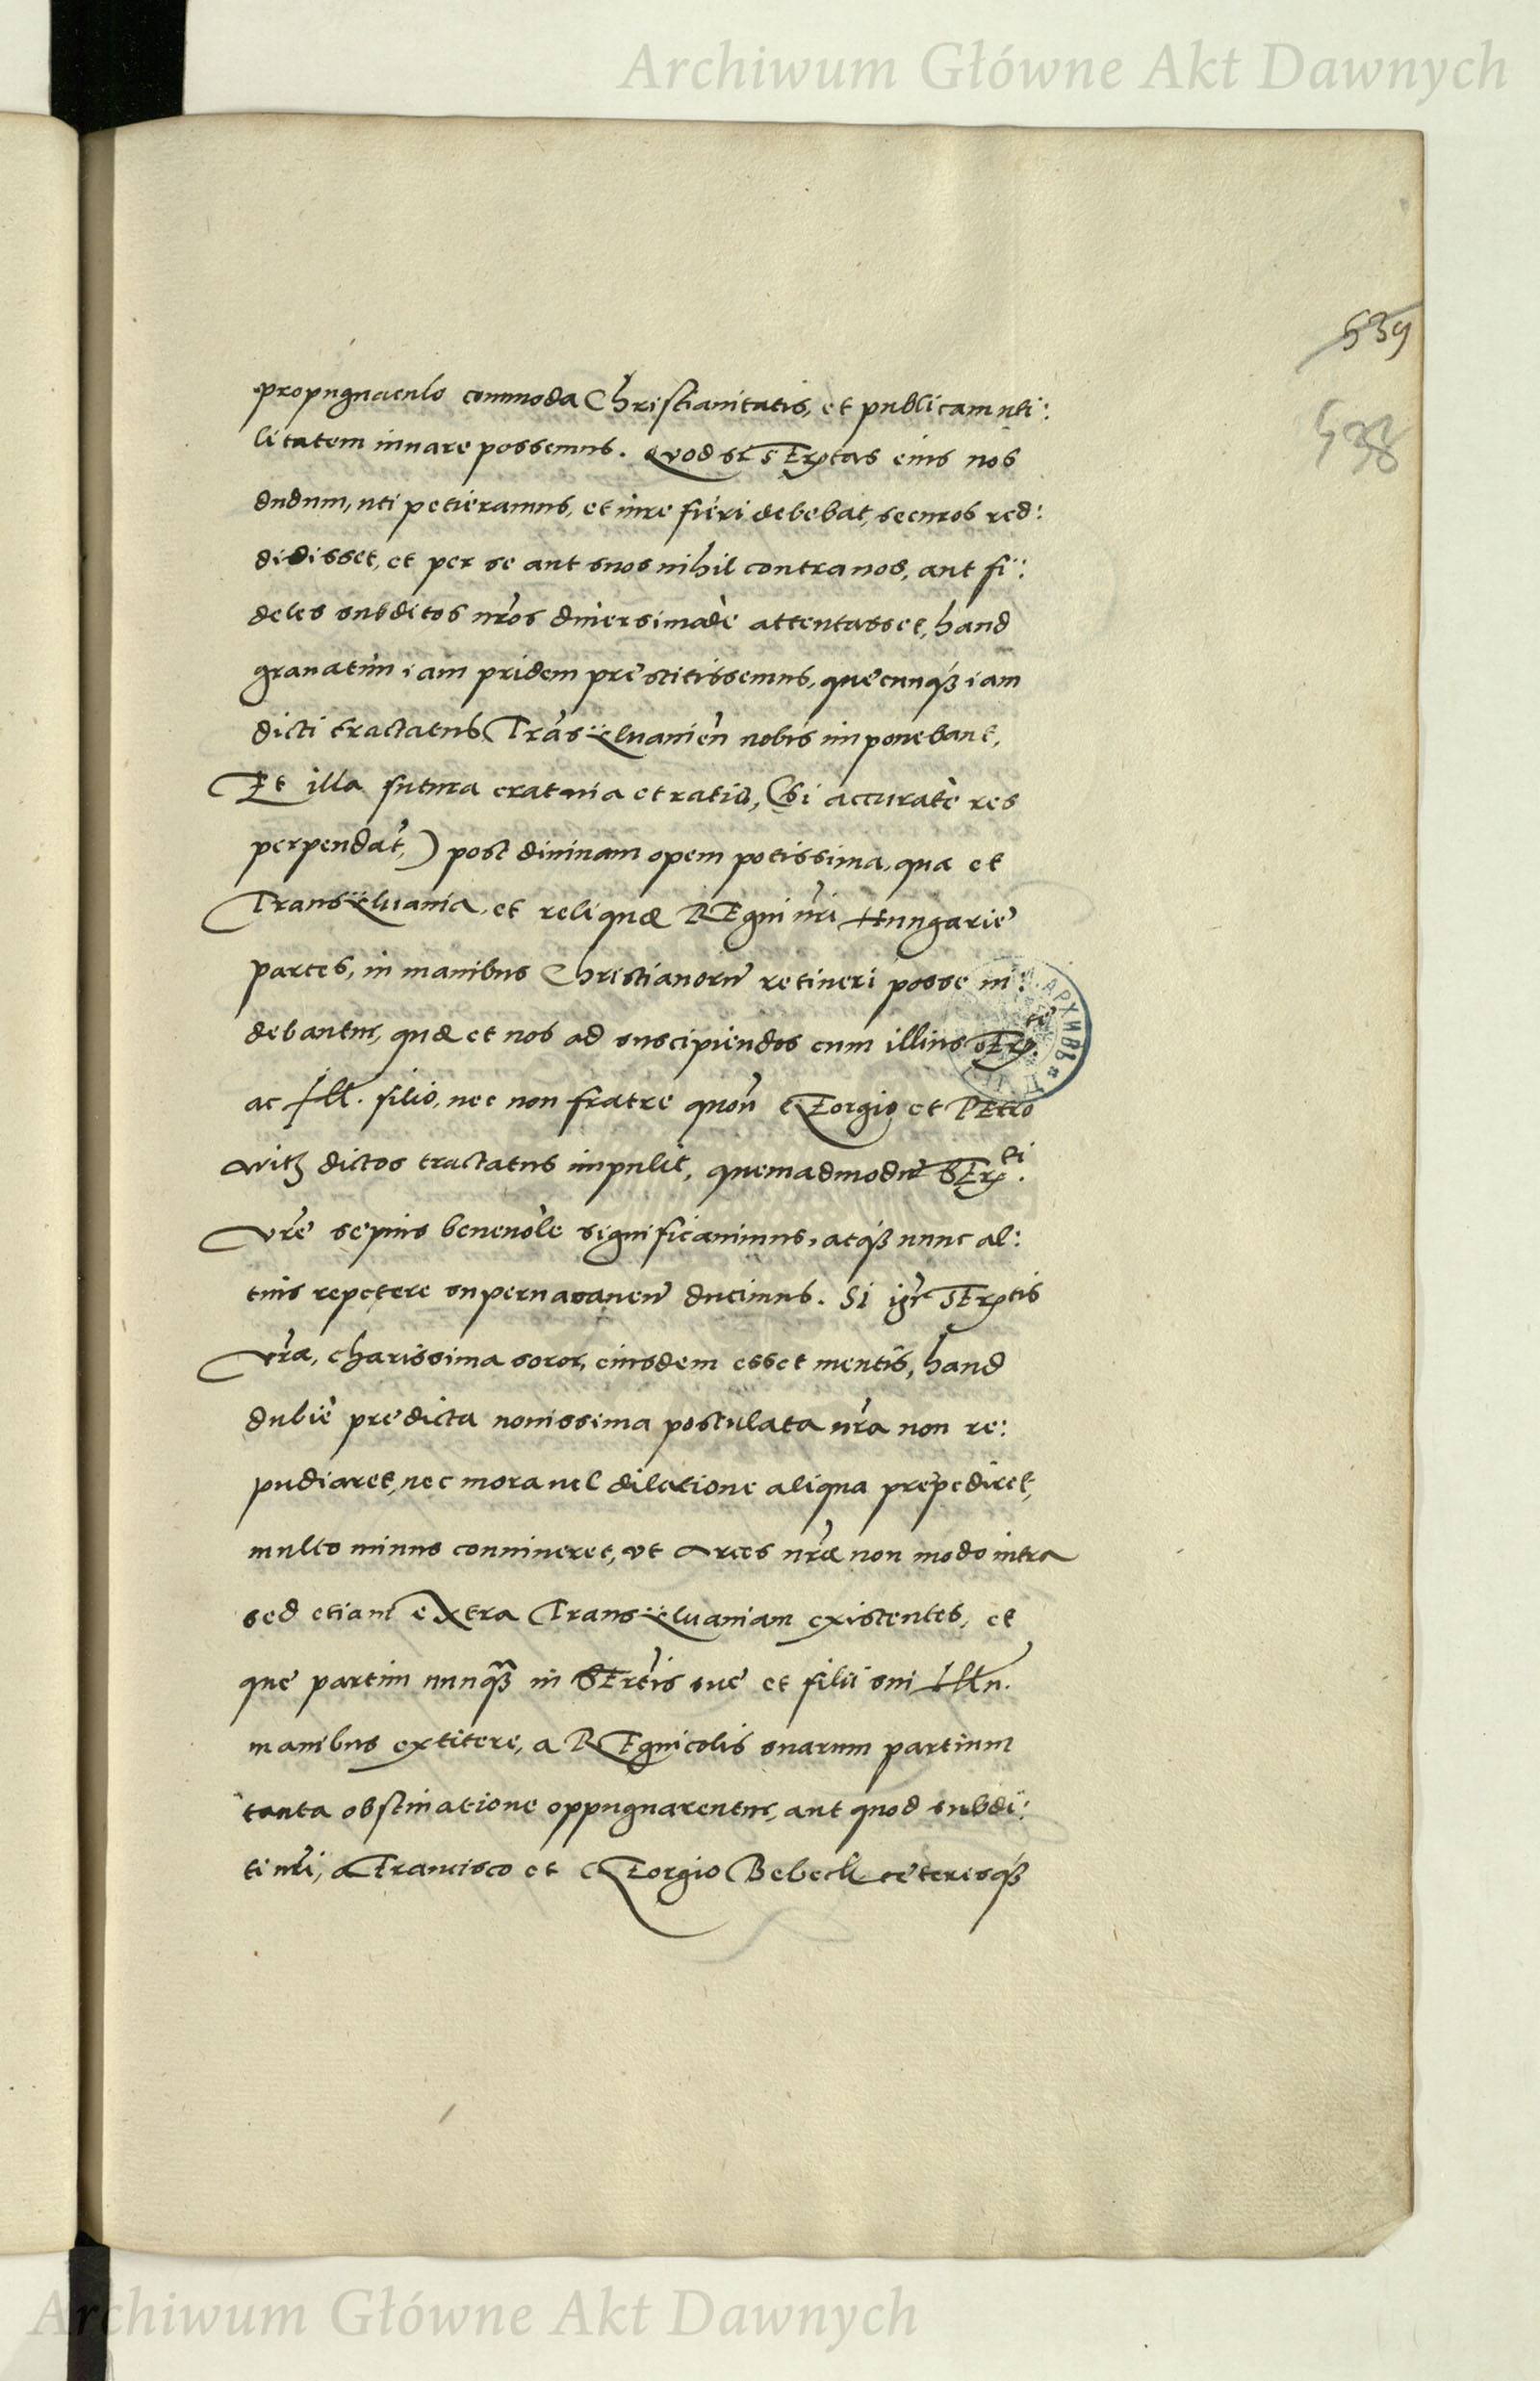 Archiwum Główne Akt Dawnych
539
538
propugnaculo commoda Christianitatis, et publicam uti:
litatem iuuare possemus. Quod si SErtas eius nos
dudum, uti petieramus, et iure fieri debebat, securos red:
didisset, et per se aut suos nihil contra nos, aut fi:
deles subditos nr̄os diuersimodè attentasset, haud
grauatim iam pridem prestitissemus, quecunq3 iam
dicti tractatus Trāsÿluanien̄ nobis imponebant.
Et illa futura erat uia et ratio, (si accuratè res
perpendat̄,) post diuinam opem potissima, qua et
Transÿluania, et reliquæ REgni nr̄i Hungarie
partes, in manibus Christianorū retineri posse ui:
debantur, quæ et nos ad suscipiendos cum illius SEr.te
ac Ill. filio, nec non fratre quon̄ GEorgio et PEtro
witz dictos tractatus impulit, quemadmodū SErti.
vr̄e sepius beneuole significauimus, atq3 nunc al:
tius repetere superuacaneū ducimus. Si igr̄ SErtis
vr̄a, charissima soror, eiusdem esset mentis, haud
dubiè predicta nouissima postulata nr̄a non re:
pudiaret, nec mora uel dilatione aliqua prepediret,
multo minus conniueret, vt Arces nr̄æ non modo intra
sed etiam extra Transÿluaniam existentes, et
que partim nunq̄3 in SErtis sue et filii sui Illn.
manibus extitere, a REgnicolis suarum partium
tanta obstinatione oppugnarentur, aut quod subdi:
ti nr̄i, a Francisco et GEorgio Bebeck ceterisq3
Archiwum Główne Akt Dawnych